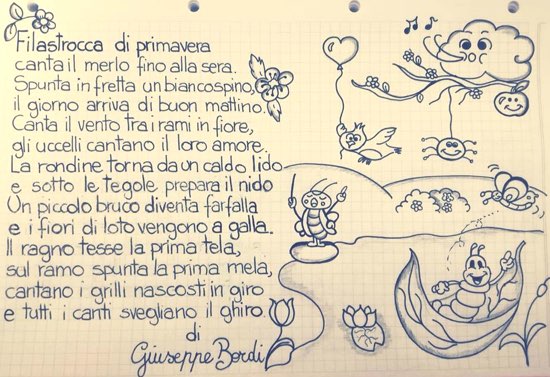 Filastrocca di primavera
canta il merlo fino alla sera.
Spunta in fretta un biancospino,
il giorno arriva di buon mattino.
Canta il vento tra i rami in fiore,
gli uccelli cantano il loro amore.
La rondine torna da un caldo lido
e sotto le tegole prepara il nido
Un piccolo bruco diventa farfalla
e i fiori di loto vengono a galla.
Il ragno tesse la prima tela,
sul ramo spunta la prima mela,
cantano i grilli nascosti in giro
e tutti i canti svegliano il ghiro.
di
Giuseppe Bordi